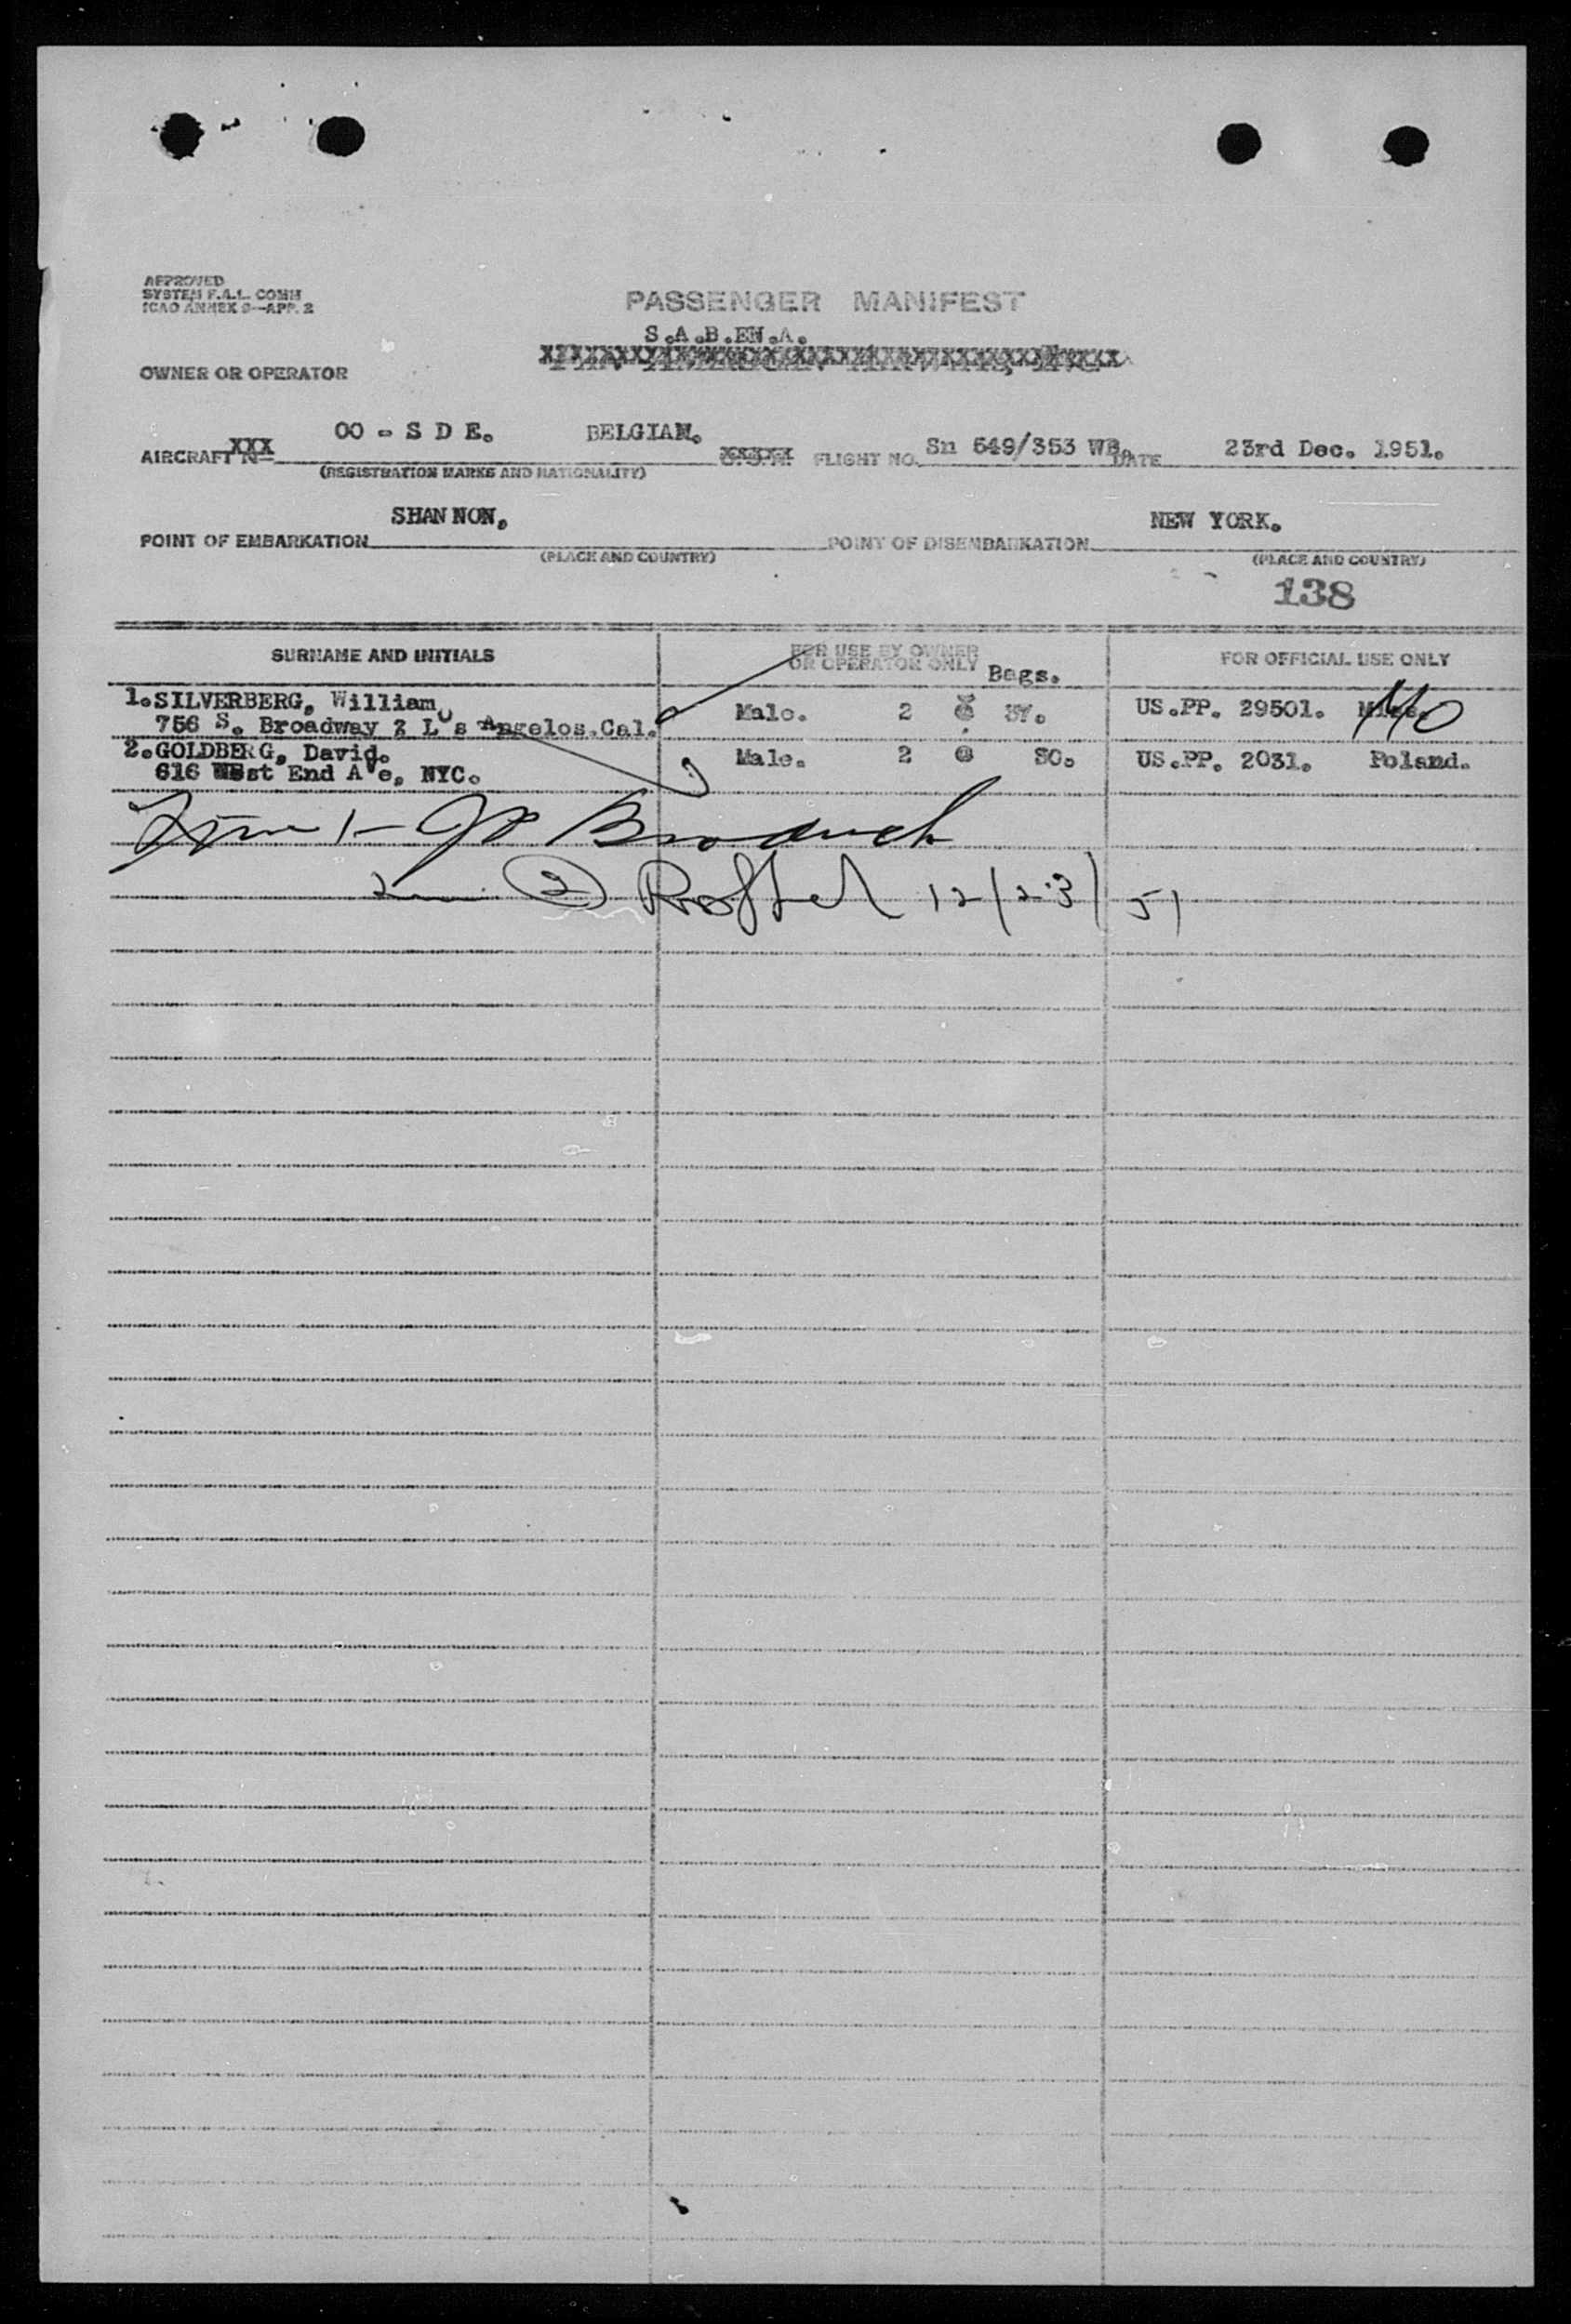 APPROVED
SYSTEM F.A.L. COMM
ICAO ANNEX 9—APP. 2
PASSENGER MANIFEST
S.A.B.EN.A.
OWNER OR OPERATOR
AIRCRAFT XXX OO - S D E. BELGIAN. XXXXX FLIGHT NO. Sn 549/353 WB. DATE 23rd Dec. 1951.
(REGISTRATION MARKS AND NATIONALITY)
POINT OF EMBARKATION SHANNON. POINT OF DISEMBARKATION NEW YORK.
(PLACE AND COUNTRY) (PLACE AND COUNTRY)
138
SURNAME AND INITIALS FOR USE BY OWNER OR OPERATOR ONLY Bags. FOR OFFICIAL USE ONLY
1. SILVERBERG, William Male. 2 @ 37. US.PP. 29501.
756 S. Broadway Los Angelos.Cal.
2. GOLDBERG, David. Male. 2 @ 30. US.PP. 2031. Poland.
616 West End Ave, NYC.
2 12/23/51